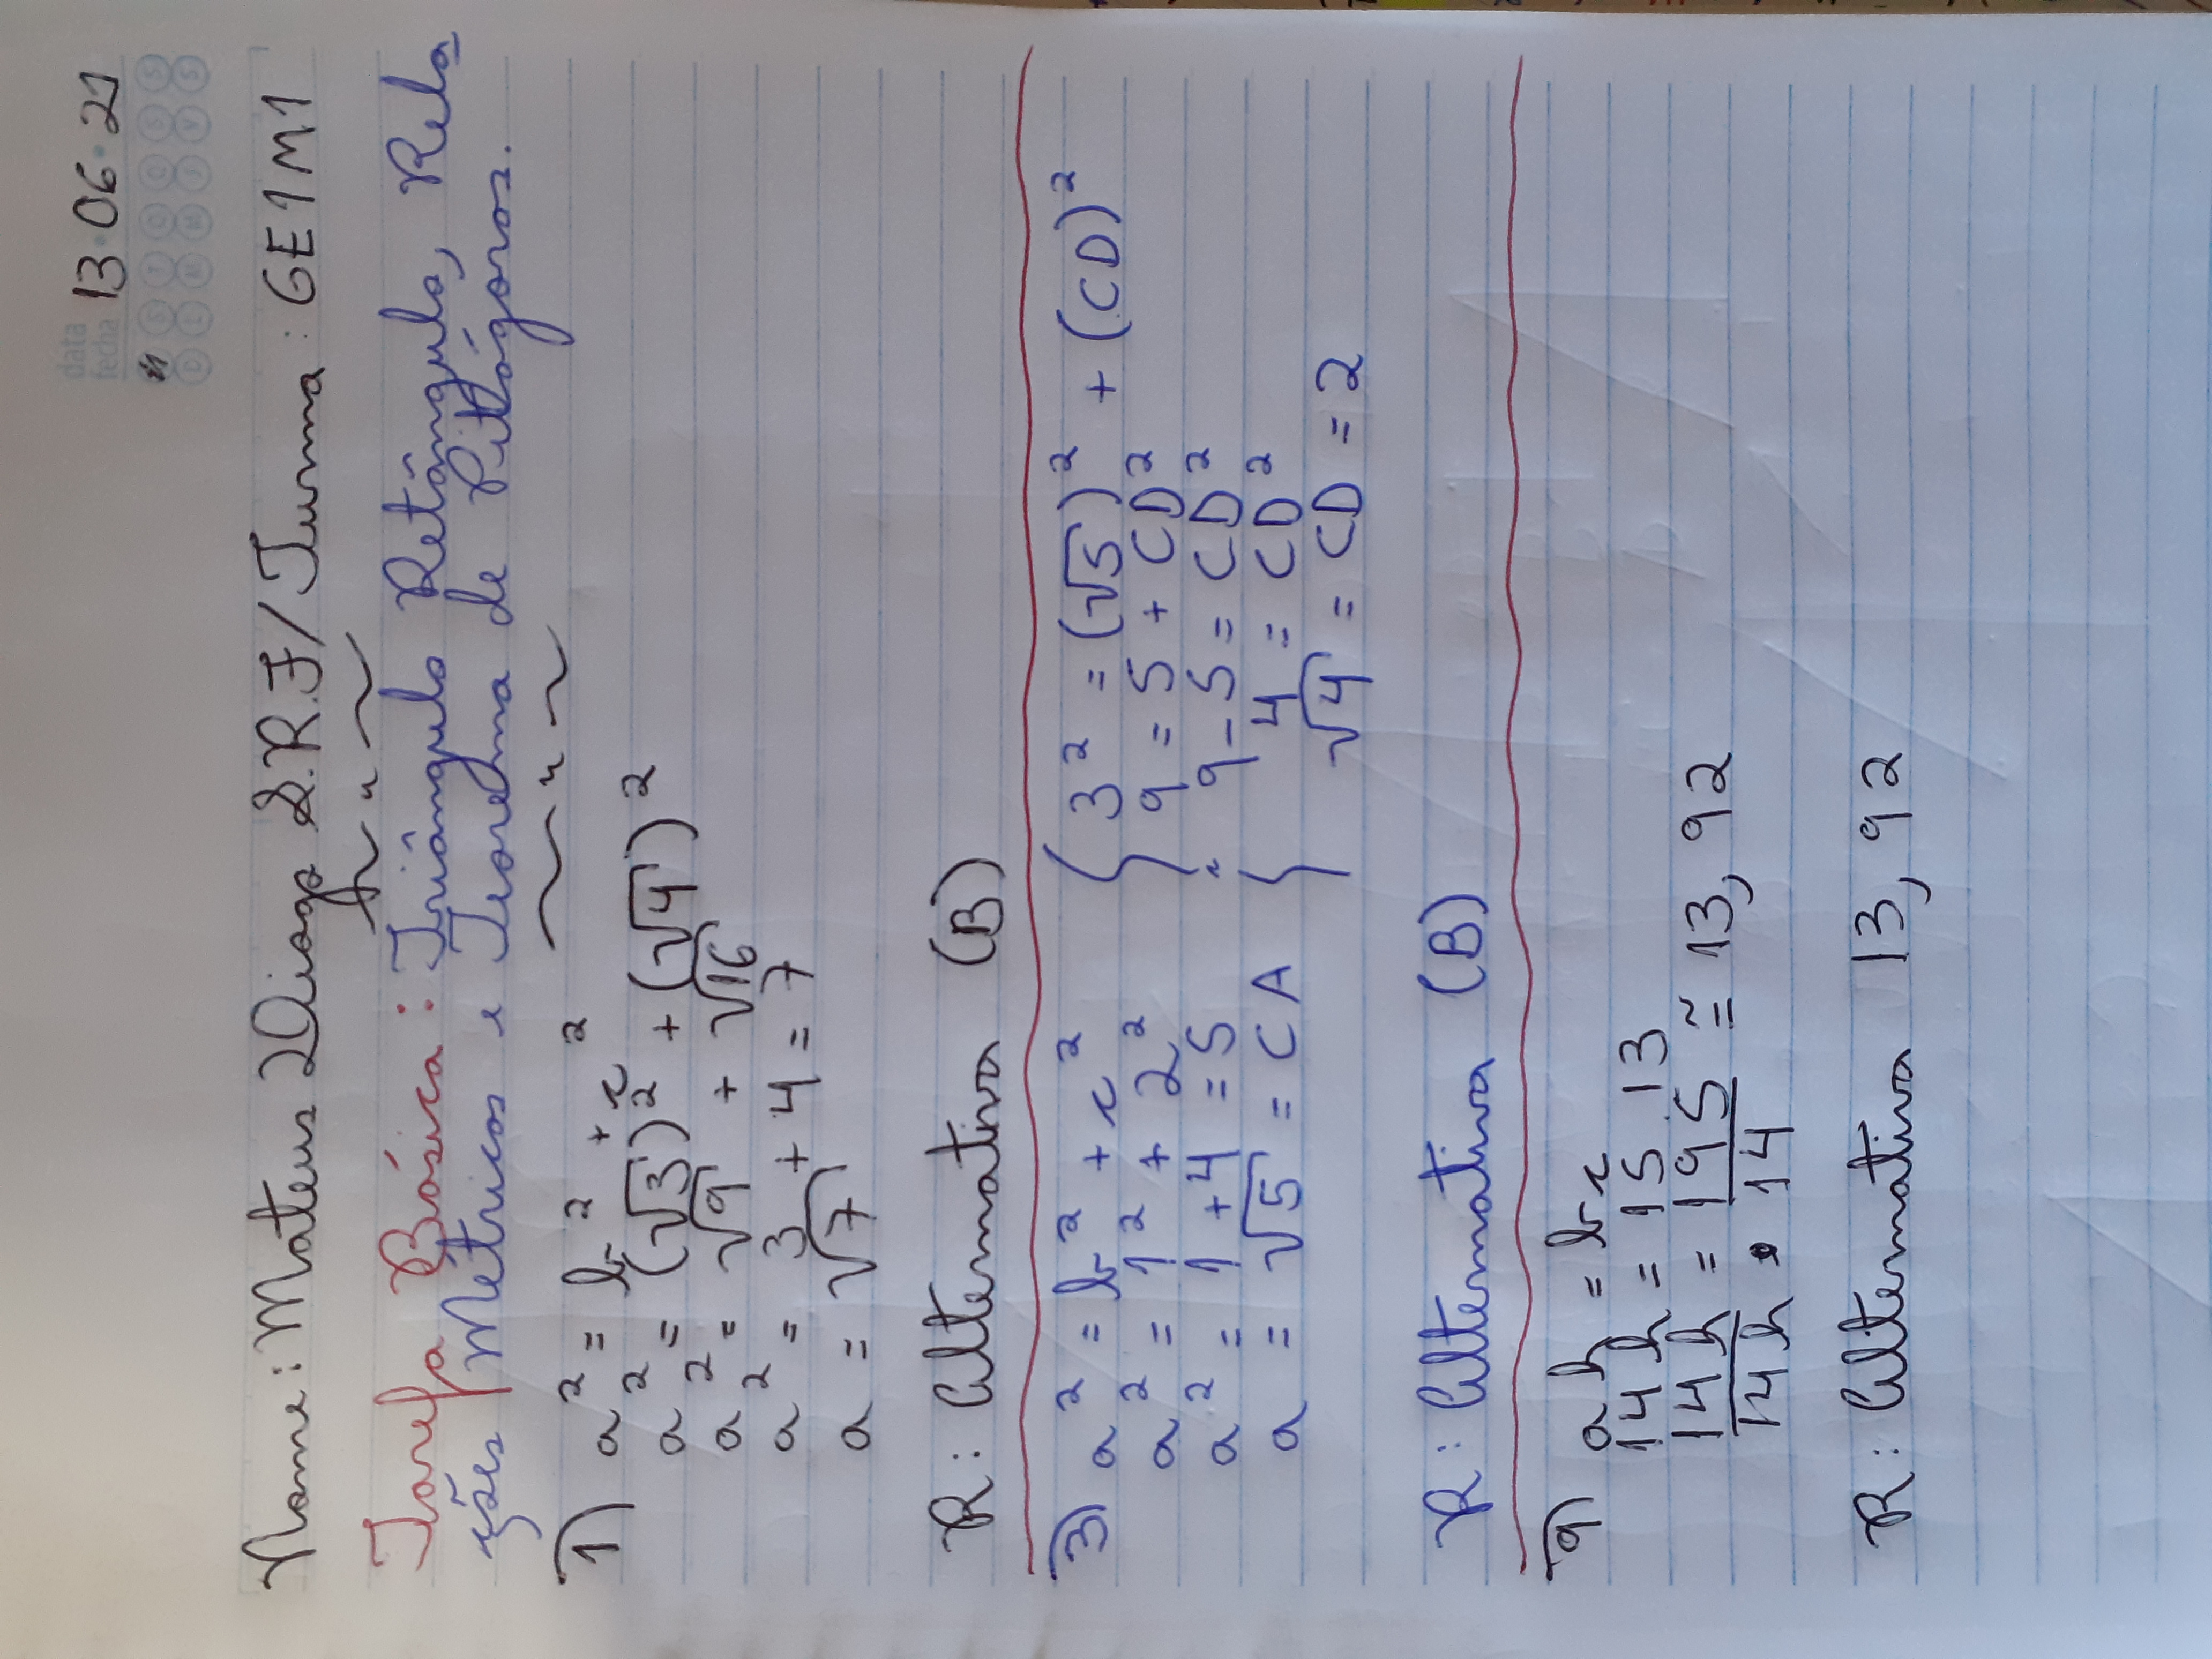 data
fecha 13·06·21
S T Q Q S S
D L M M J V S
Nome: Mateus Diogo S.R.F/ Turma: GE1M1
Tarefa Básica: Triângulo Retângulo, Rela
ções Métricas e Teorema de Pitágoras.
1) a² = b² + c²
a² = (√3)² + (√4)²
a² = √9 + √16
a² = 3 + 4 = 7
a = √7
R: Alternativa (B)
3) a² = b² + c²
a² = 1² + 2²
a² = 1 + 4 = 5
a = √5 = CA
3² = (√5)² + (CD)²
9 = 5 + CD²
9 - 5 = CD²
4 = CD²
√4 = CD = 2
R: Alternativa (B)
9) ah = bc
14h = 15.13
14h/14h = 195/14 ≅ 13,92
R: Alternativa 13,92